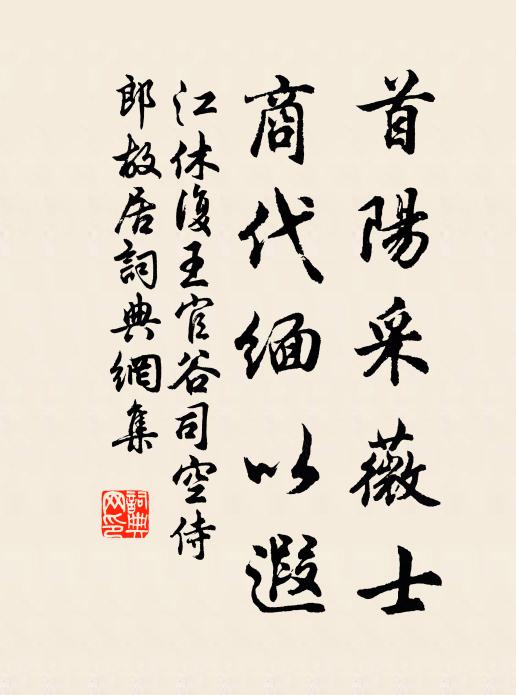 首陽采薇士
商代緬以遐
江休復王官谷司空侍
郎故居詞典網集
詞典
网印